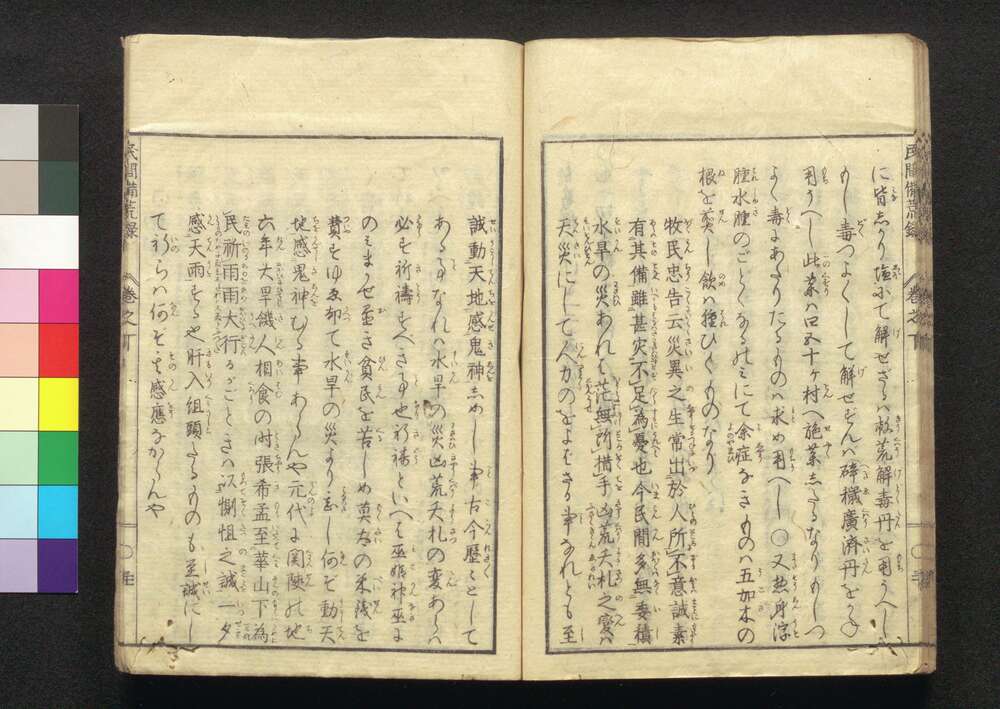 に皆しるり塩にて解せざるハ救荒解毒丹を用うへし
もし毒つよくして解せずんハ碎穢廣済丹をかね
用うへし此薬ハ口五十ヶ村へ施薬したるなりもしつ
よく毒にあたりたるものハ求め用へし〇又熱身浮
腫水腫のごとくなるのミにて余症なきものハ五加木の
根を煎し飲ハ腫ひくものなり
牧民忠告云災異之生常出於人所不意誠素
有其備雖甚灾不足為憂也今民間多無委積
水旱の災あれハ茫無所措手凶荒夭札之変ハ
天災にして人力のをよばざる事なれとも至
誠動天地感鬼神しめし事古今歴々として
あることなれハ水旱の災凶荒夭札の変あらハ
必す祈禱すへき事也祈禱といへは巫娘神巫に
のミまかせ置き貧民を苦しめ莫大の米銭を
費すゆゑ却て水旱の災より悪し何そ動天
地感鬼神むる事あらんや元代に関陝の地
六年大旱饑人相食の时張希孟至華山下為
民祈雨雨大行るごときハ以惻怛之誠一夕
感天雨するや肝入組頭たるものも至誠にし
て祈らハ何そ其感應なからんや
民間備荒録
巻之下
民間備荒録
巻之下